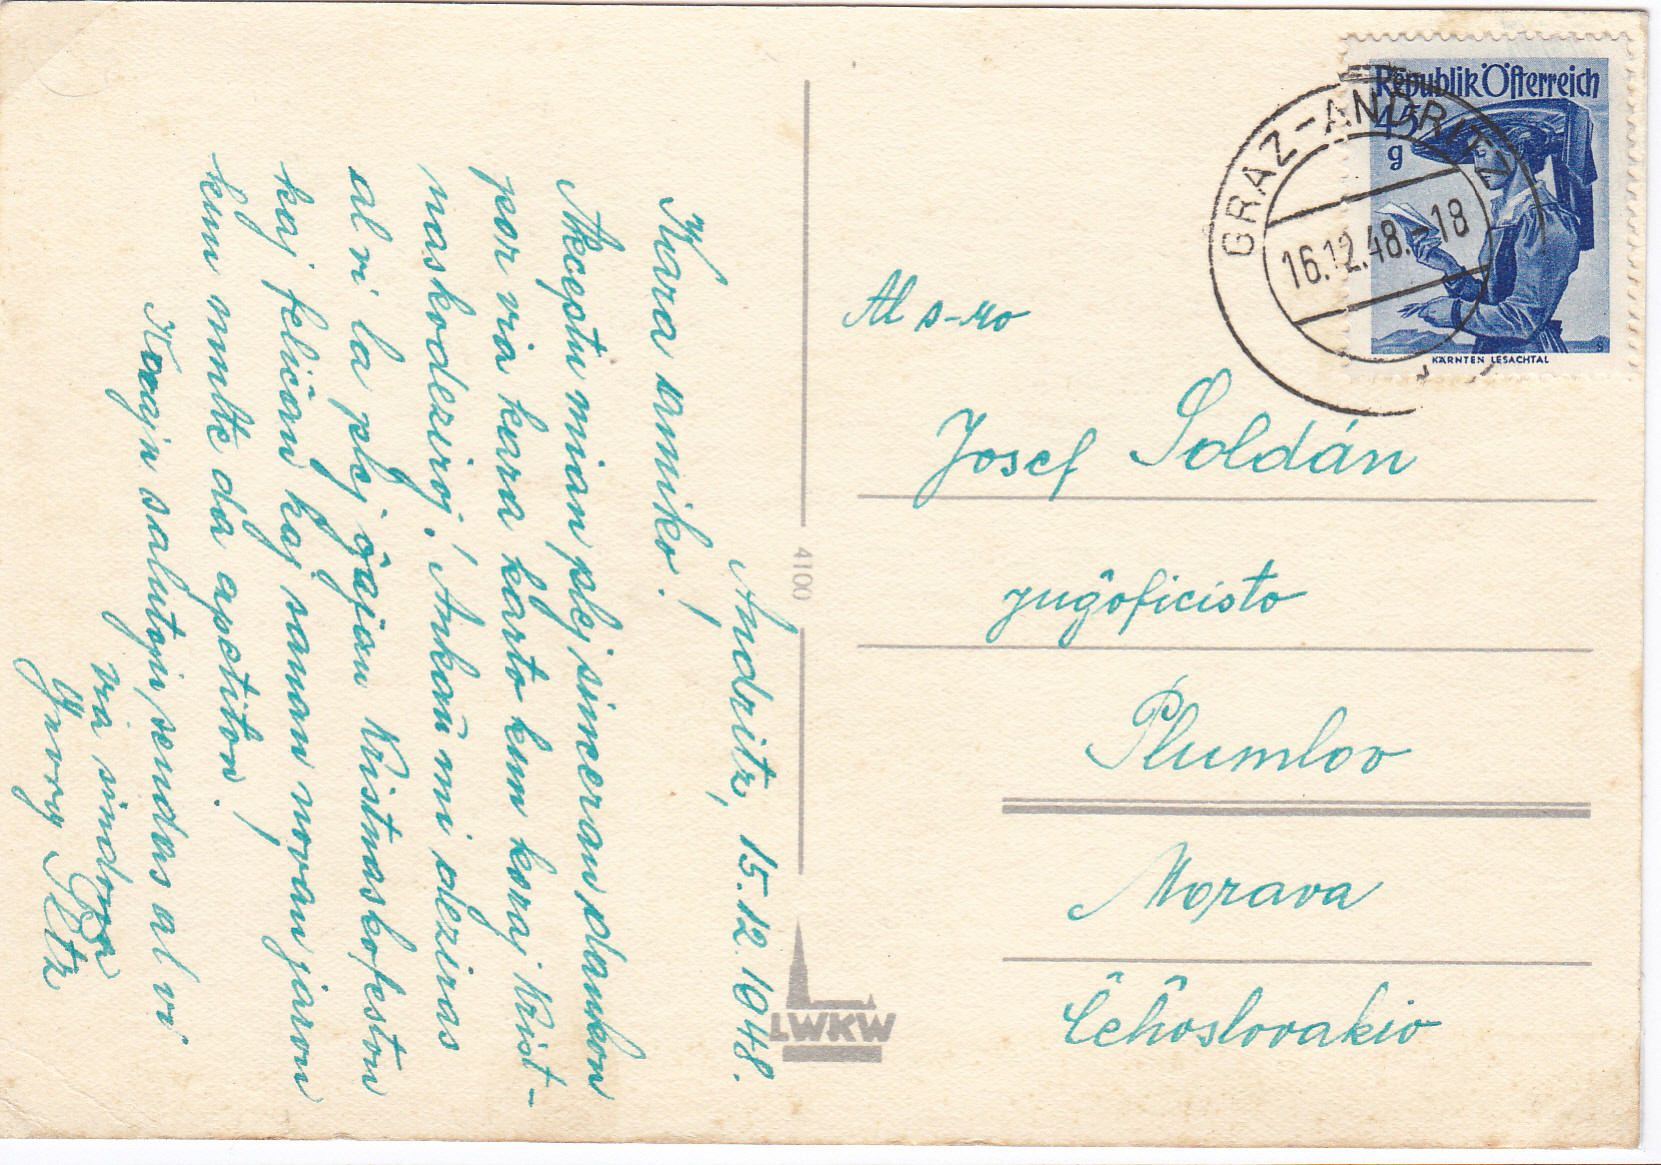 Andritz, 15.12.1948.
Kara amiko!
Akceptu mian plej sinceran dankon
por via kara karto kun koraj Krist-
naskodeziroj! Ankaŭ mi deziras
al vi la plej ĝojan Kristnaskofeston
kaj feliĉan kaj sanan novan jaron
kun multe da apetiton!
Korajn salutojn sendas al vi
via sindona
4100
LWKW
Republik Österreich
45
g
KÄRNTEN LESACHTAL
GRAZ-ANDRITZ
16.12.48.-18
Al s-ro
Josef Soldán
juĝoficisto
Plumlov
Morava
Ĉeĥoslovakio